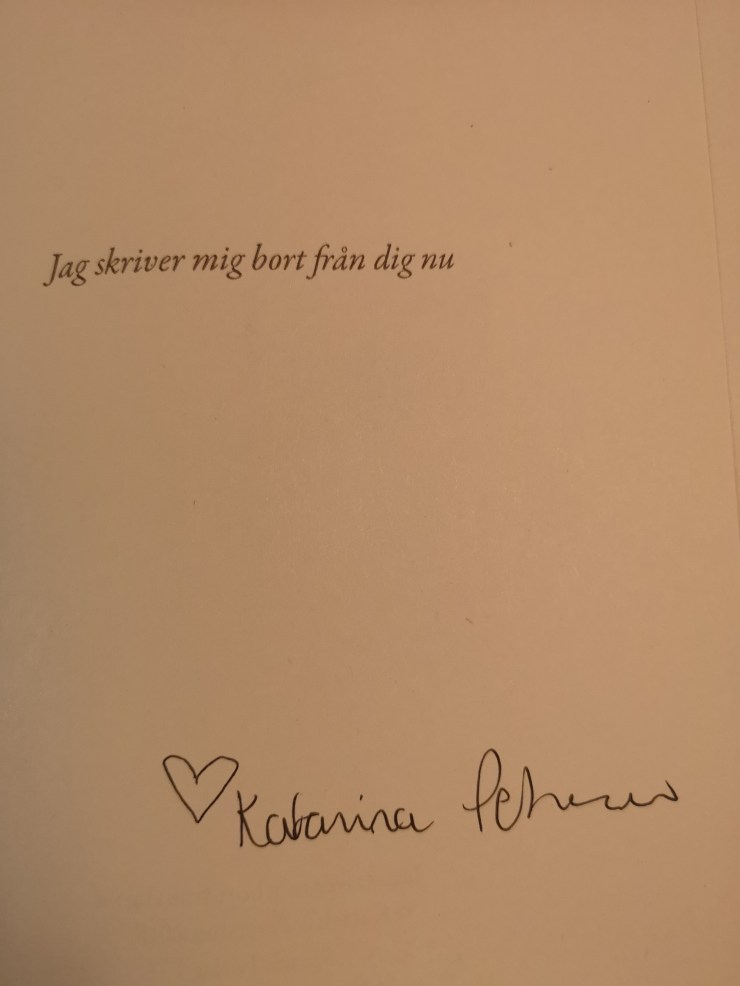 Jag skriver mig bort från dig nu
Katarina